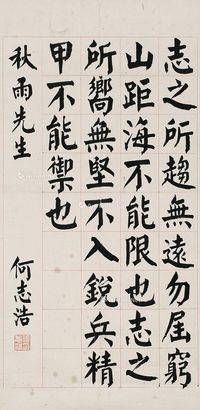 志之所趨無遠勿屆窮
山距海不能限也志之
所嚮無堅不入銳兵精
甲不能禦也
秋雨先生
何志浩